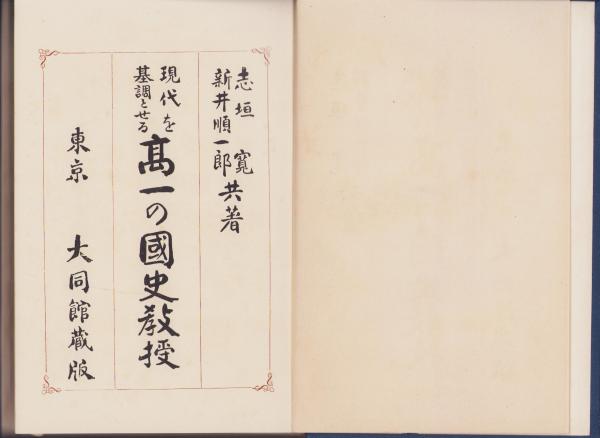 志垣寛
新井順一郎 共著
現代を
基調とせる
高一の國史教授
東京 大同館蔵版